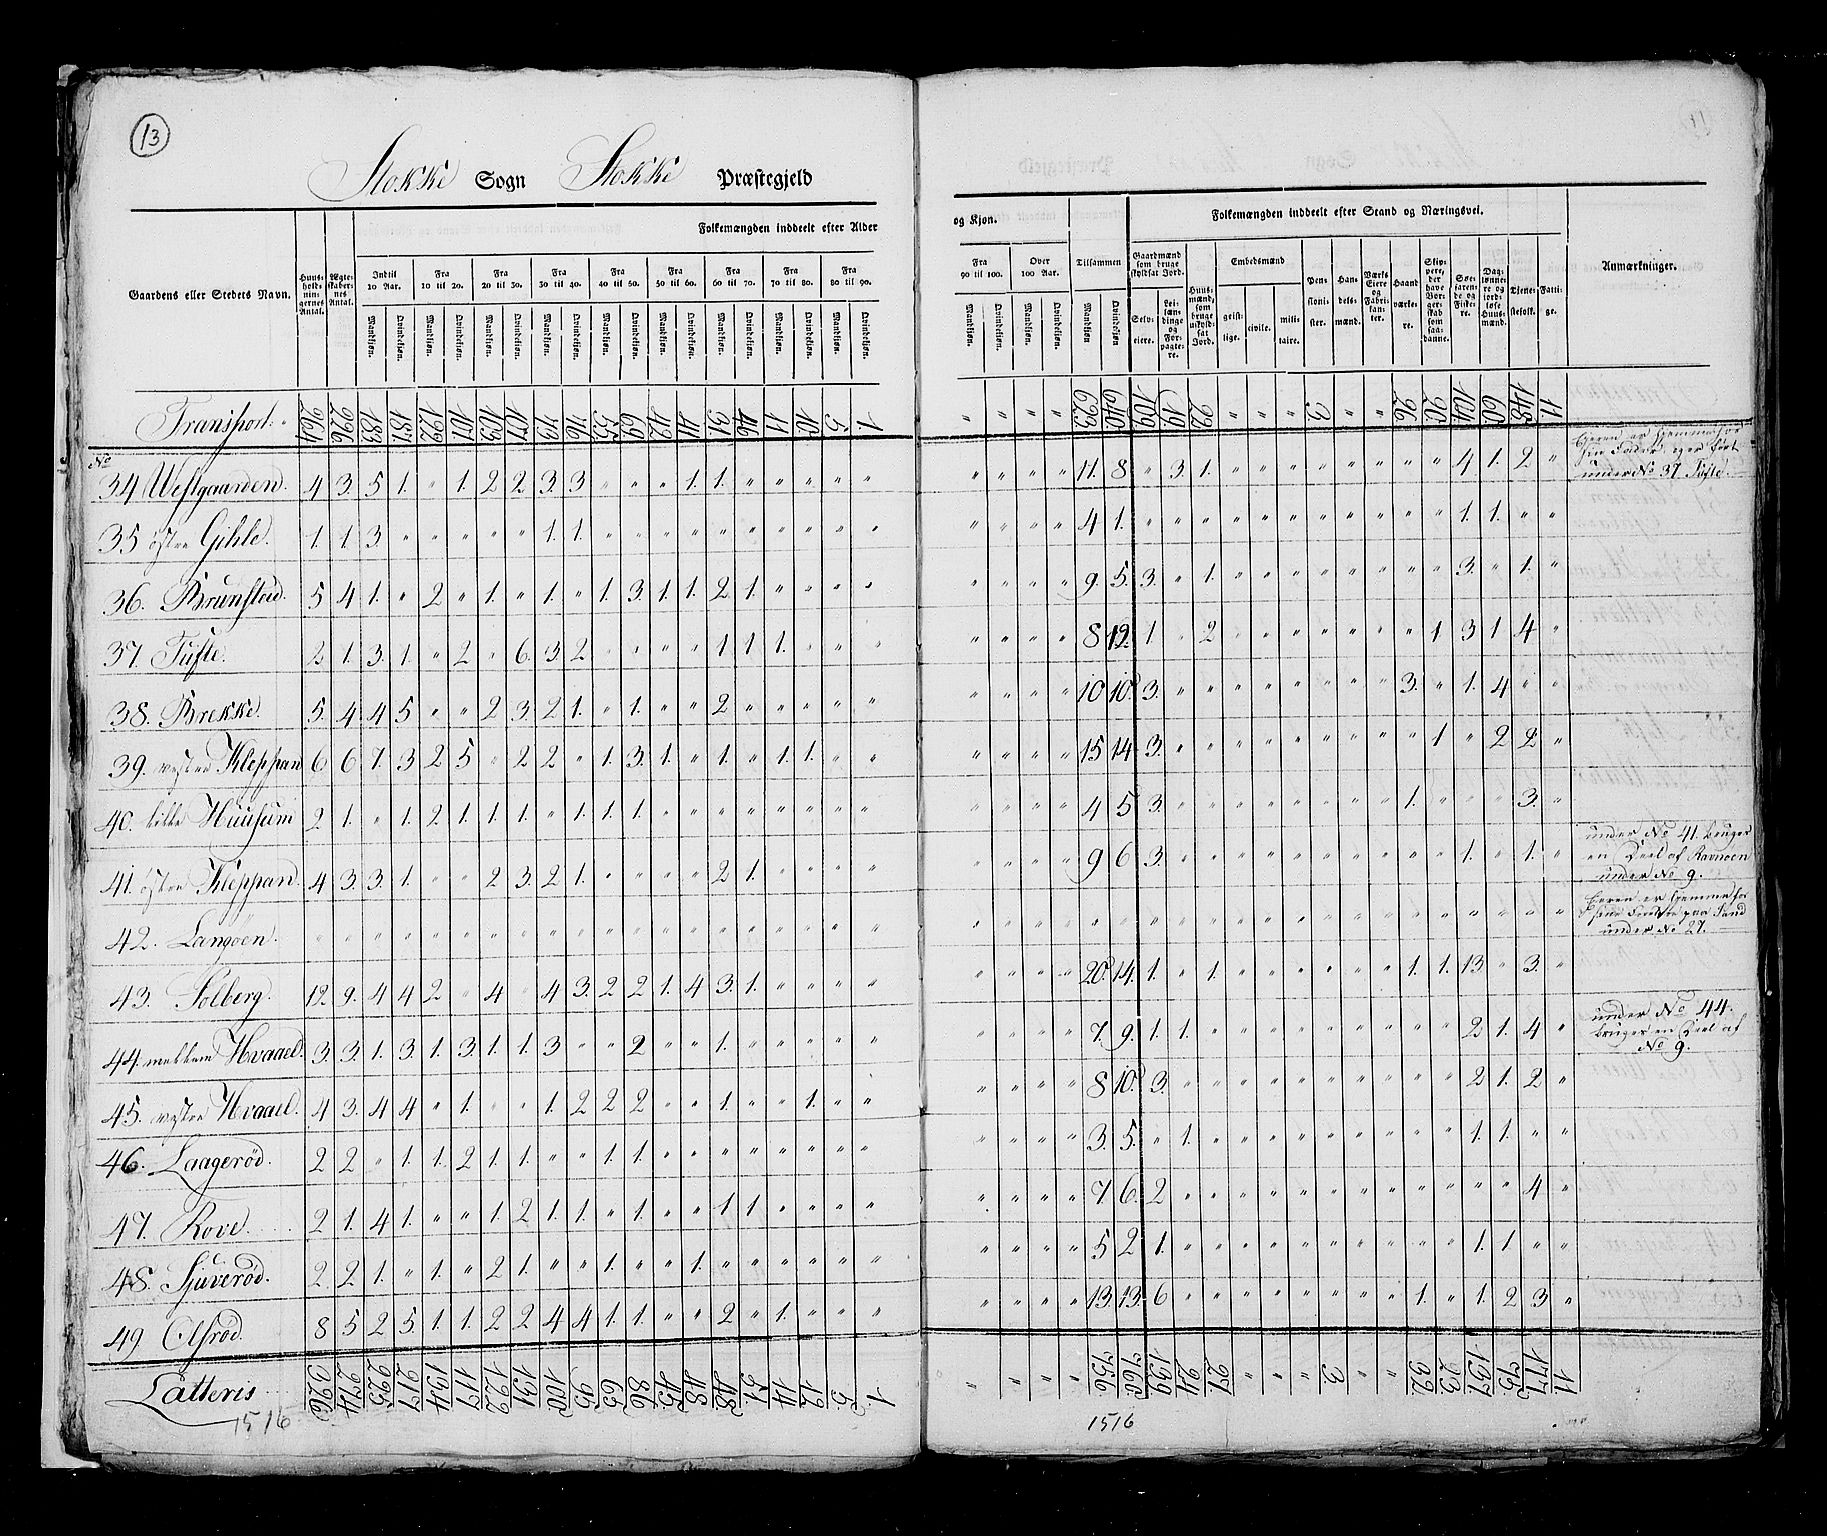 13
Stokke Sogn Stokke Præstegjeld
Folkemængden inddeelt efter Alder
og Kjøn.
Folkemængden inddeelt efter Stand og Næringsvei.
Gaardens eller Stedets Navn.
Huusholdningernes Antal.
Ægteskabernes Antal.
Indtil 10 Aar.
Fra 10 til 20.
Fra 20 til 30.
Fra 30 til 40.
Fra 40 til 50.
Fra 50 til 60.
Fra 60 til 70.
Fra 70 til 80.
Fra 80 til 90.
Fra 90 til 100.
Over 100 Aar.
Tilsammen
Gaardmænd som bruge skyldsat Jord.
Huusmænd, som bruge uskyldsat Jord.
Embedsmænd
Pensionister.
Handelsmænd.
Værkseiere og Fabrikanter.
Haandværkere.
Søefarende og Fiskere.
Tjenestefolk.
Fattige.
Anmærkninger.
Mandkjøn. Qvindekjøn.
Selveiere. Leilændinge og Forpagtere.
geistlige. civile. militaire.
Transport. 264 226 183 187 122 101 103 107 73 76 55 69 42 41 31 46 11 10 5 1. " " " " 623 640 109 19 22 " " " 3 " " 26 20 104 60 148 11
No
34 Westgaarden. 4 3. 5 1. " 1. 2 2 3. 3 " " " 1. 1. " " " " " " " " " 11. 8 " 3. 1. " " " " " " " " 4 1. 2 "
under No 37 Tufte.
35 østre Gihle. 1. 1. 3. " " " " " 1. 1. " " " " " " " " " " " " " " 4 1. " " " " " " " " " " " 1. 1. " "
36. Brunstad. 5 4 1. " 2 " 1. " 1. " 1. 3. 1. 1. 2 1. " " " " " " " " 9. 5. 3. " 1. " " " " " " " " 3. " 1. "
37. Tufte. 2 1. 3. 1. " 2 " 6. 3. 2 " " " " 1 1 1. " " " " " " " 8 12. 1 " 2 " " " " " " " 1 3 1 4 "
38. Brekke. 5. 4 4 5 " " 2 3. 2 1. " 1. " " 2 " " " " " " " " " 10 10. 3. " " " " " " " " 3. " 1. 4 " "
39. vestre Kleppan 6 6 7. 3 2 5 " 2 2 " 1. 3. 1. " 1. " 1. 1. " " " " " " 15 14. 3. " " " " " " " " " 1 " 2 2 "
40. lille Huusum 2 1. " 1. 2 1. 1. 1. " 1. 1. 1. " " " " " " " " " " " " 4 5 3. " " " " " " " " 1. " " " 3. "
41. østre Kleppan. 4 3. 3. 1. " " 2 3. 2 1. " " " " 2 1. " " " " " " " " 9 6 3. " " " " " " " " " " 1. " 1. "
under No 41. bruger
en Deel af Ravnøen
under No 9.
42. Langøen. " " " " " " " " " " " " " " " " " " " " " " " " " " " " " " " " " " " " " " " " "
under No 27.
43. Solberg. 12. 9. 4 4 2 " 4 " 4 3. 2 2 1. 4 3. 1. " " " " " " " " 20. 14. 1. " 1. " " " " " " 1. 1. 13 " 3. "
44. mellem Hvaael. 3. 3. 1. 3. 1. 3. 1. 1. 3 " " 2 " " 1. " " " " " " " " " 7. 9. 1. 1. " " " " " " " " " 2 1. 4 "
under No 44.
bruges en Deel af
No 9.
45. vestre Hvaael. 4 3. 4 4 " 1. " " 1. 2 2 2 " " 1. " " 1. " " " " " " 8 10. 3. " " " " " " " " " " 2 1. 2 "
46. Laagerød. 2 2 " 1. 1. 2 1. 1. " " 1. 1. " " " " " " " " " " " " 3. 5. " 1. " " " " " " " " " 1. 1. " "
47. Rove. 2 1. 4 1. " " 1. 2 1. 1. " 1. " " 1 1. " " " " " " " " 7. 6. 2 " " " " " " " " " " " " 4 "
48. Sjuverød. 2. 2 1. " 1. " 2 1. " " 1. " " 1. " " " " " " " " " " 5 2 1. " " " " " " " " " " 1. 1. " "
49 Olsrød. 8 5 2 5. 1. 1. 2 2 4 4 1. 1. " " 2 " 1. " " " " " " " 13. 13. 6 " " " " " " " " 1. " 1. 2 3 "
Latteris 326 274 225 217 134 117 122 131 100 95 65 86 45 48 48 51. 14 12 5 1. " " " " 756 760 139 24 27 " " " 3 " " 32 23 137 75 177 11
1516
1516